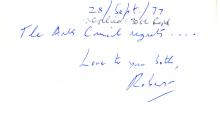 28/Sept./77
The Arts Council regrets ....
Love to you both,
Robert ....